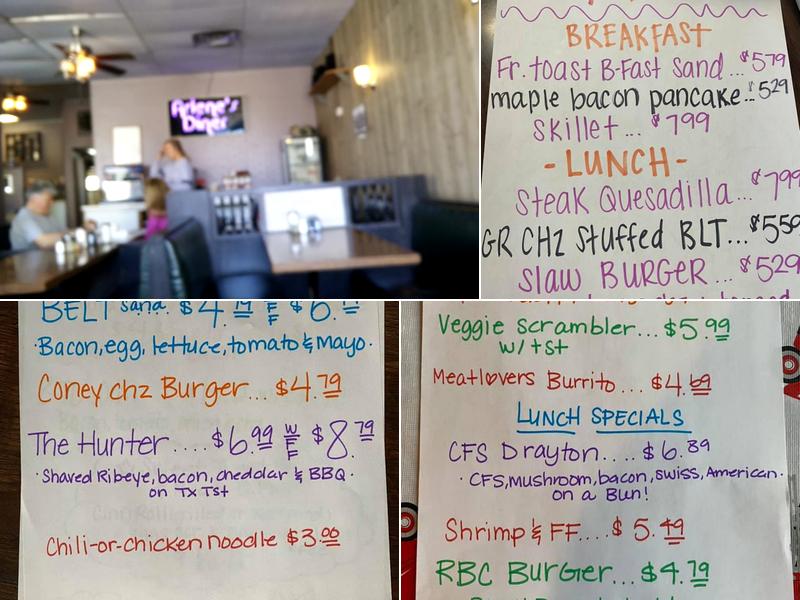 Arlene's
Diner
BREAKFAST
Fr. toast B-Fast Sand... $5 79
maple bacon pancake... $5 29
Skillet... $7 99
- LUNCH -
Steak Quesadilla... $7 99
GR CHZ Stuffed BLT... $5 59
Slaw BURGER... $5 29
BELT Sand. $4. 79 F F $6.
·Bacon, egg, lettuce, tomato & Mayo·
Coney chz Burger... $4.79
The Hunter .... $6.99 W F F $8.79
·Shaved Ribeye, bacon, cheddar & BBQ·
on Tx Tst
Chili-or-chicken noodle $3.00
Veggie scrambler... $5.99
w/ tst
Meatlovers Burrito... $4.69
LUNCH SPECIALS
CFS Drayton.... $6.89
·CFS, mushroom, bacon, swiss, American·
on a Bun!
Shrimp & FF.... $5.49
RBC Burger... $4.79